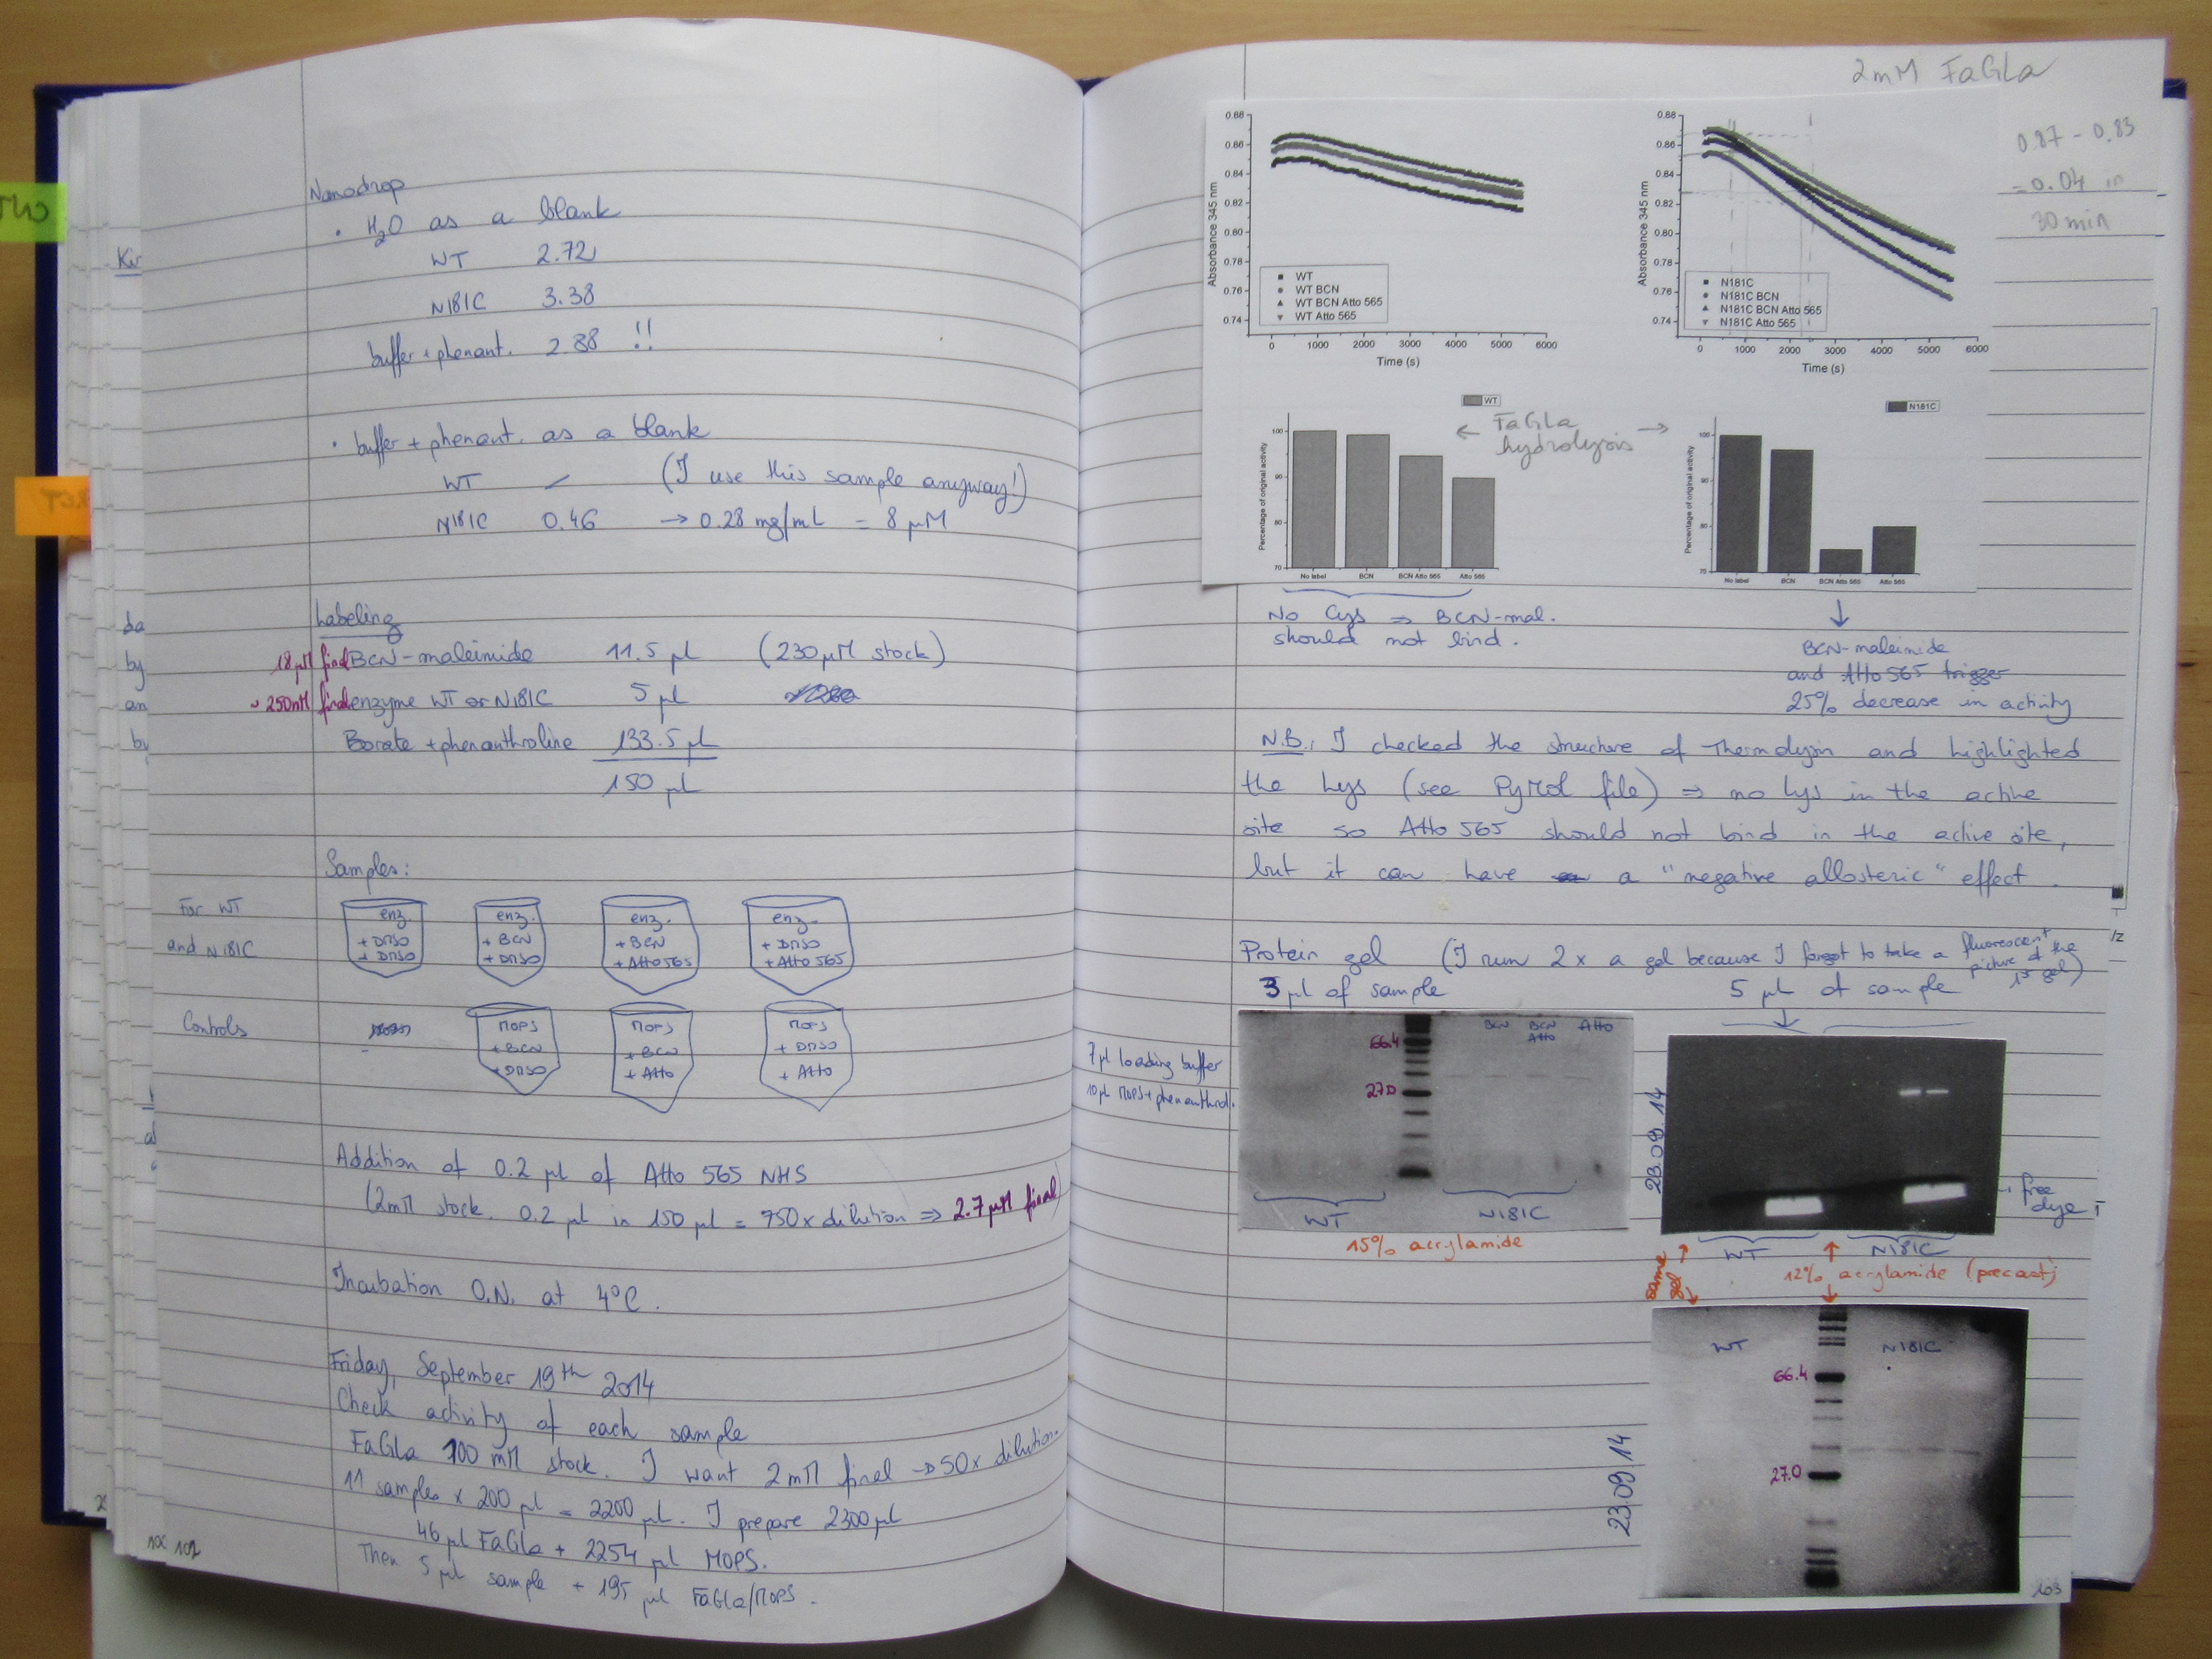 Nanodrop
• H2O as a blank
WT 2.72
N181C 3.38
buffer + phenant. 2.88 !!
• buffer + phenant. as a blank
WT — (I use this sample anyway!)
N181C 0.46 → 0.28 mg/mL = 8 µM
Labeling
18 µM final BCN-maleimide 11.5 µl (230 µM stock)
~ 250nM final enzyme WT or N181C 5 µl
Borate + phenanthroline 133.5 µl
150 µl
Samples:
For WT
and N181C
enz.
+ DMSO
+ DMSO
enz.
+ BCN
+ DMSO
enz.
+ BCN
+ Atto 565
enz.
+ DMSO
+ Atto 565
Controls
MOPS
+ BCN
+ DMSO
MOPS
+ BCN
+ Atto
MOPS
+ DMSO
+ Atto
Addition of 0.2 µl of Atto 565 NHS
(2mM stock. 0.2 µl in 150 µl = 750x dilution ⇒ 2.7 µM final)
Incubation O.N. at 4°C.
Friday, September 19th 2014
Check activity of each sample
FaGla 100 mM stock. I want 2mM final → 50x dilution.
11 samples x 200 µl = 2200 µl. I prepare 2300 µl
46 µl FaGla + 2254 µl MOPS.
Then 5 µl sample + 195 µl FaGla/MOPS.
102
Ku
da
by
en
by
2mM FaGLa
0.87 - 0.83
= 0.04 in
30 min
Absorbance 345 nm
0.88
0.86
0.84
0.82
0.80
0.78
0.76
0.74
WT
WT BCN
WT BCN Atto 565
WT Atto 565
0 1000 2000 3000 4000 5000 6000
Time (s)
Absorbance 345 nm
0.88
0.86
0.84
0.82
0.80
0.78
0.76
0.74
N181C
N181C BCN
N181C BCN Atto 565
N181C Atto 565
0 1000 2000 3000 4000 5000 6000
Time (s)
WT
Percentage of original activity
100
90
80
70
No label BCN BCN Atto 565 Atto 565
← FaGla →
hydrolysis
N181C
Percentage of original activity
100
90
80
70
No label BCN BCN Atto 565 Atto 565
No Cys ⇒ BCN-mal.
should not bind.
↓
BCN-maleimide
and Atto 565 trigger
25% decrease in activity
N.B.: I checked the structure of Thermolysin and highlighted
the Lys (see PyMol file) ⇒ no Lys in the active
site so Atto 565 should not bind in the active site,
but it can have a "negative allosteric" effect.
Protein gel (I run 2x a gel because I forgot to take a fluorescent
picture of the
1st gel)
3 µl of sample
5 µl of sample
7 µl loading buffer
10 µl MOPS + phenanthrol.
BCN BCN Atto Atto
66.4
27.0
WT N181C
15% acrylamide
23.09.14
free
dye
WT N181C
12% acrylamide (precast)
same
gel
WT N181C
66.4
27.0
23.09.14
103